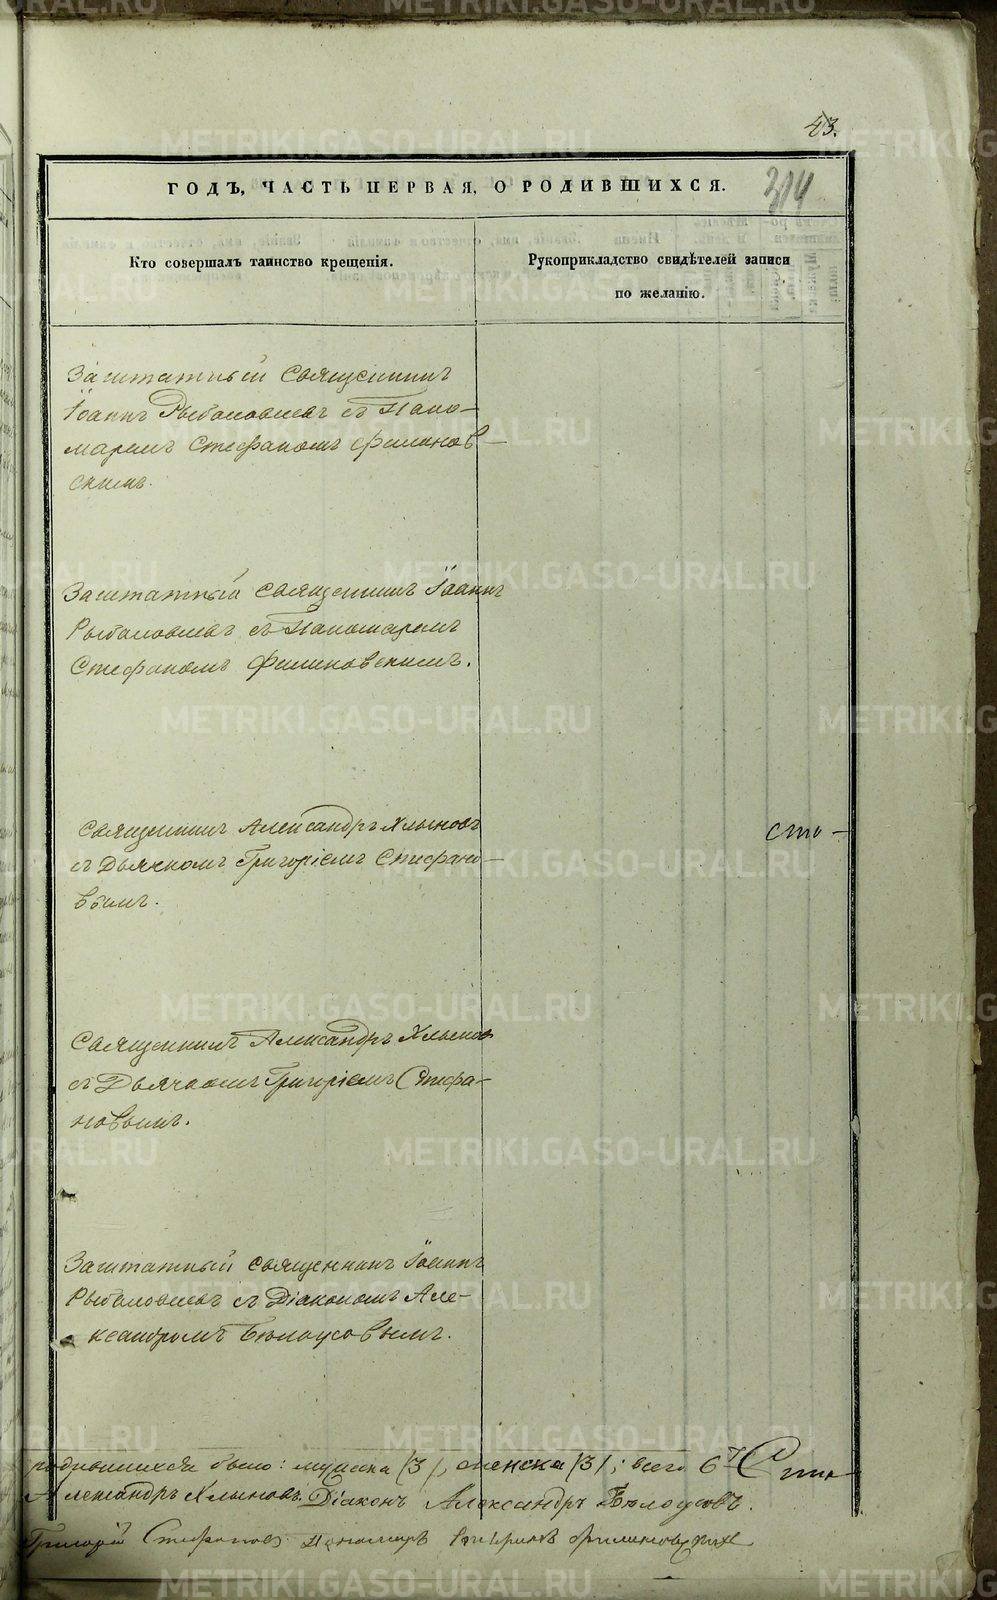 43.
ГОДЪ, ЧАСТЬ ПЕРВАЯ, О РОДИВШИХСЯ.
314
Кто совершалъ таинство крещенія.
Рукоприкладство свидѣтелей записи
по желанію.
Заштатный священникъ
Іоаннъ Рыболовлевъ съ Поно-
маремъ Стефаномъ Филинов-
скимъ.
Заштатный священникъ Іоаннъ
Рыболовлевъ съ Пономаремъ
Стефаномъ Филиновскимъ.
Священникъ Александръ Хлыновъ
съ Дьячкомъ Григоріемъ Стефано-
вымъ.
Священникъ Александръ Хлыновъ
съ Дьячкомъ Григоріемъ Стефа-
новымъ.
Заштатный священникъ Іоаннъ
Рыболовлевъ съ Діакономъ Але-
ксандромъ Бѣлоусовымъ.
родившихся было: мужска /3/, женска /3/; всего 6
Александръ Хлыновъ. Діаконъ Александръ Бѣлоусовъ.
Григорій Стефановъ Пономарь
METRIKI.GASO-URAL.RU